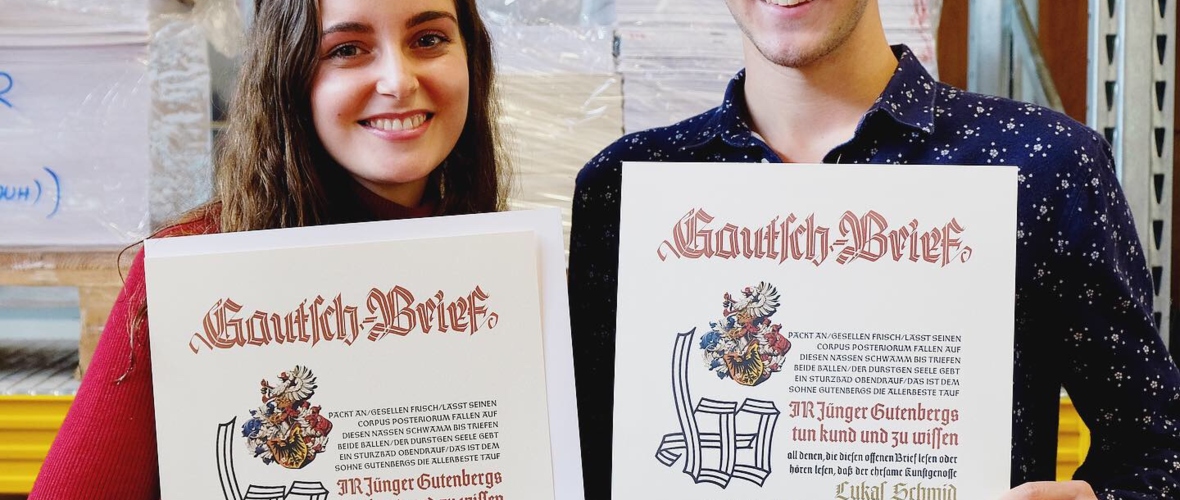 Gautſch-Brief
PACKT AN/GESELLEN FRISCH/LASST SEINEN
CORPUS POSTERIORUM FALLEN AUF
DIESEN NASSEN SCHWAMM BIS TRIEFEN
BEIDE BALLEN/DER DURSTGEN SEELE GEBT
EIN STURZBAD OBENDRAUF/DAS IST DEM
SOHNE GUTENBERGS DIE ALLERBESTE TAUF
IR Jünger Gutenbergs
kund und zu wiſſen
Gautſch-Brief
PACKT AN/GESELLEN FRISCH/LASST SEINEN
CORPUS POSTERIORUM FALLEN AUF
DIESEN NASSEN SCHWAMM BIS TRIEFEN
BEIDE BALLEN/DER DURSTGEN SEELE GEBT
EIN STURZBAD OBENDRAUF/DAS IST DEM
SOHNE GUTENBERGS DIE ALLERBESTE TAUF
WIR Jünger Gutenbergs
tun kund und zu wiſſen
all denen, die dieſen offenen Brief leſen oder
hören leſen, daß der ehrſame Kunſtgenoſſe
Lukas Schmid